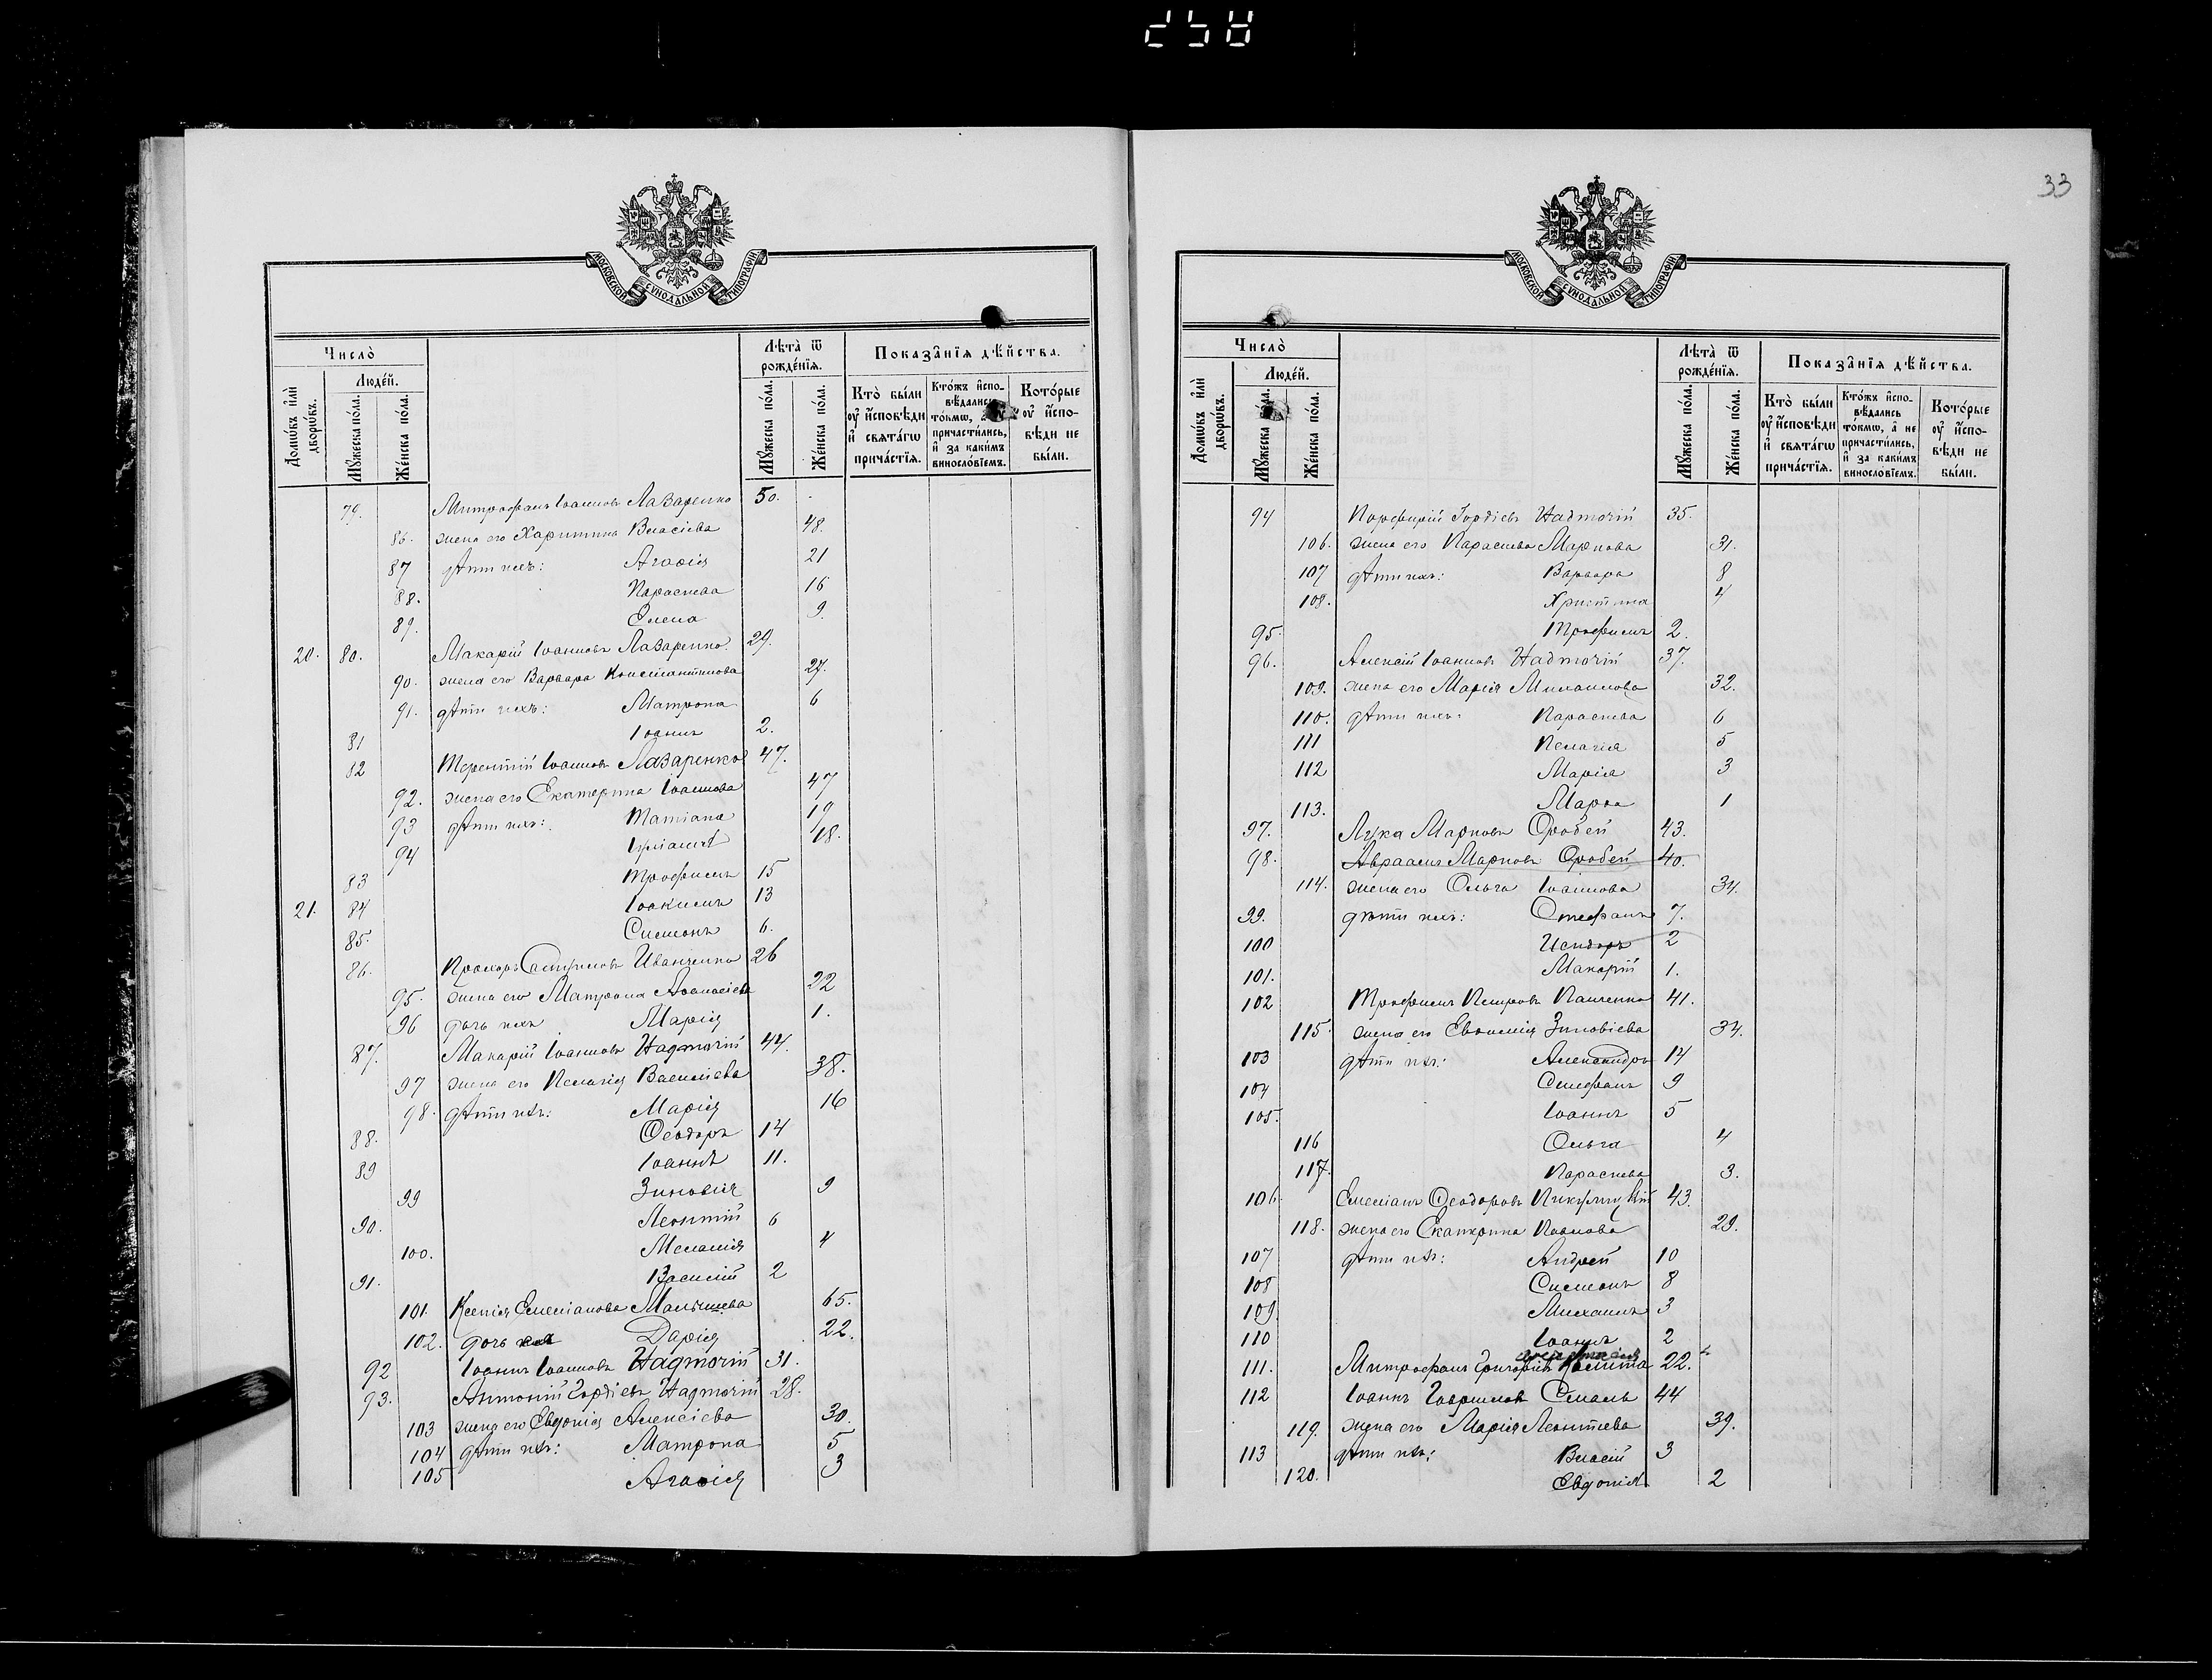 33
МОСКОВСКОЙ СУНОДАЛЬНОЙ ТИПОГРАФІИ
Число̀
Людей.
Домѡвъ и҆лѝ дворѡвъ.
Мꙋжеска по́ла.
Же́нска по́ла.
Лѣта̀ ѿ рожде́нїѧ.
Мꙋжеска по́ла.
Же́нска по́ла.
Показа̑нїѧ дѣ́йства.
Кто̀ бы́ли ᲂу҆ и҆сповѣди и҆ свѧта́гѡ прича́стїѧ.
Кто́жъ и҆спо-вѣ́дались то́кмѡ, а҆ не причасти́лись, и҆ за каки́мъ виносло́вїемъ.
Кото́рые ᲂу҆ и҆спо-вѣди не бы́ли.
79. Митрофанъ Іоанновъ Лазаренко 50.
86. жена его Харитина Власіева 48.
87 дѣти ихъ: Агафія 21
88. Параскева 16
89. Елена 9.
20. 80. Макарій Іоанновъ Лазаренко 29.
90. жена его Варвара Константинова 27.
91. дѣти ихъ: Матрона 6
81 Іоаннъ 2.
82 Терентій Іоанновъ Лазаренко 47.
92. жена его Екатерина Іоаннова 47
93 дѣти ихъ: Татіана 19
94 Іуліанія 18.
83 Трофимъ 15
21. 84 Іоакимъ 13
85. Симеонъ 6.
86. Прохоръ Иванченко 26
95. жена его Матрона Аѳанасіева 22
96 дочь ихъ Марія 1.
87. Макарій Іоанновъ Надточій 44.
97 жена его Пелагія Василіева 38.
98. дѣти ихъ: Марія 16
88. Ѳеодоръ 14
89 Іоаннъ 11.
99 Зиновія 9
90. Леонтій 6
100. Меланія 4
91. Василій 2
101. Ксенія Емеліанова Малышева 65.
102. дочь ея Дарія 22.
92 Іоаннъ Іоанновъ Надточій 31.
93. Антоній Гордіевъ Надточій 28.
103 жена его Евдокія Алексіева 30.
104 дѣти ихъ: Матрона 5
105 Агафія 3
МОСКОВСКОЙ СУНОДАЛЬНОЙ ТИПОГРАФІИ
Число̀
Людей.
Домѡвъ и҆лѝ дворѡвъ.
Мꙋжеска по́ла.
Же́нска по́ла.
Лѣта̀ ѿ рожде́нїѧ.
Мꙋжеска по́ла.
Же́нска по́ла.
Показа̑нїѧ дѣ́йства.
Кто̀ бы́ли ᲂу҆ и҆сповѣди и҆ свѧта́гѡ прича́стїѧ.
Кто́жъ и҆спо-вѣ́дались то́кмѡ, а҆ не причасти́лись, и҆ за каки́мъ виносло́вїемъ.
Кото́рые ᲂу҆ и҆спо-вѣди не бы́ли.
94 Порфирій Гордіевъ Надточій 35.
106. жена его Параскева Маркова 31.
107 дѣти ихъ: Варвара 8
108. Христина 4
95. Трофимъ 2.
96. Алексій Іоанновъ Надточій 37.
109. жена его Марія Михаилова 32.
110. дѣти ихъ: Параскева 6
111 Пелагія 5
112 Марія 3
113. Марѳа 1
97. Лука Марковъ Оробей 43.
98. Авраамъ Марковъ Оробей 40.
114. жена его Ольга Іоаннова 34.
99. дѣти ихъ: Стефанъ 7.
100 Исидоръ 2
101. Макарій 1.
102 Трофимъ Петровъ Пащенко 41.
115. жена его Евѳимія Зиновіева 34.
103 дѣти ихъ: Александръ 14
104 Стефанъ 9
105. Іоаннъ 5
116 Ольга 4
117. Параскева 3.
106 Емеліанъ Ѳеодоровъ 43.
118. жена его Екатерина Павлова 29.
107 дѣти ихъ: Андрей 10
108 Симеонъ 8
109 Михаилъ 3
110 Іоаннъ 2
111. Митрофанъ Григоріевъ Калита 22.
112 Іоаннъ Гавриловъ Смаль 44
119. жена его Марія Леонтіева 39.
113 дѣти ихъ: Власій 3
120. Евдокія 2